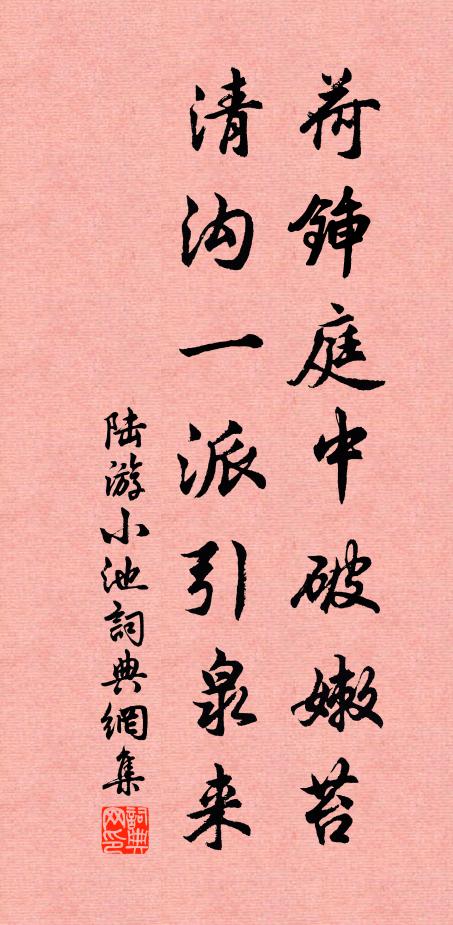 荷鍤庭中破嫩苔
清沟一派引泉来
陆游小池詞典網集
詞典网印